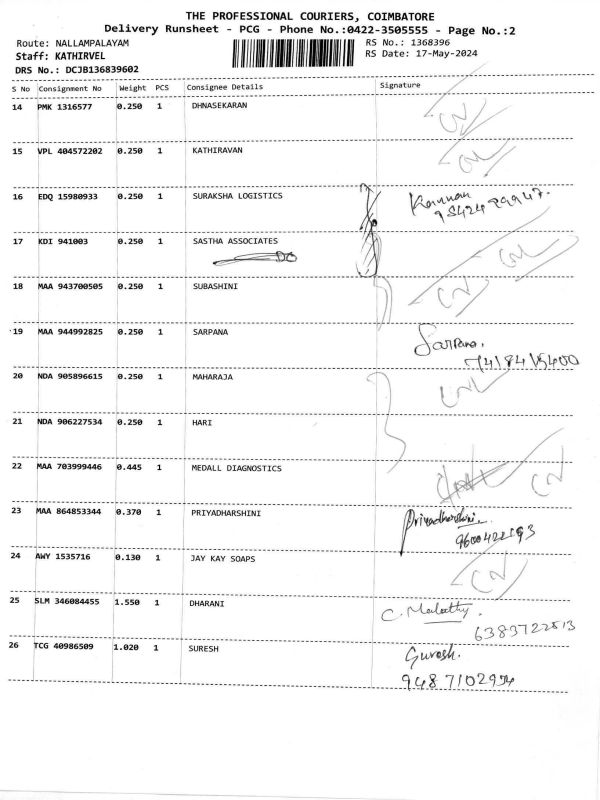 THE PROFESSIONAL COURIERS, COIMBATORE
Delivery Runsheet - PCG - Phone No.:0422-3505555 - Page No.:2
Route: NALLAMPALAYAM RS No.: 1368396
Staff: KATHIRVEL RS Date: 17-May-2024
DRS No.: DCJB136839602
S No Consignment No Weight PCS Consignee Details Signature
14 PMK 1316577 0.250 1 DHNASEKARAN
15 VPL 404572202 0.250 1 KATHIRAVAN
16 EDQ 15980933 0.250 1 SURAKSHA LOGISTICS Kannan
17 KDI 941003 0.250 1 SASTHA ASSOCIATES
18 MAA 943700505 0.250 1 SUBASHINI
19 MAA 944992825 0.250 1 SARPANA Sarpana.
20 NDA 905896615 0.250 1 MAHARAJA
21 NDA 906227534 0.250 1 HARI
22 MAA 703999446 0.445 1 MEDALL DIAGNOSTICS
23 MAA 864853344 0.370 1 PRIYADHARSHINI Priyadharshini
24 AWY 1535716 0.130 1 JAY KAY SOAPS
25 SLM 346084455 1.550 1 DHARANI C. Malathy.
6383722513
26 TCG 40986509 1.020 1 SURESH Suresh.
9487102954